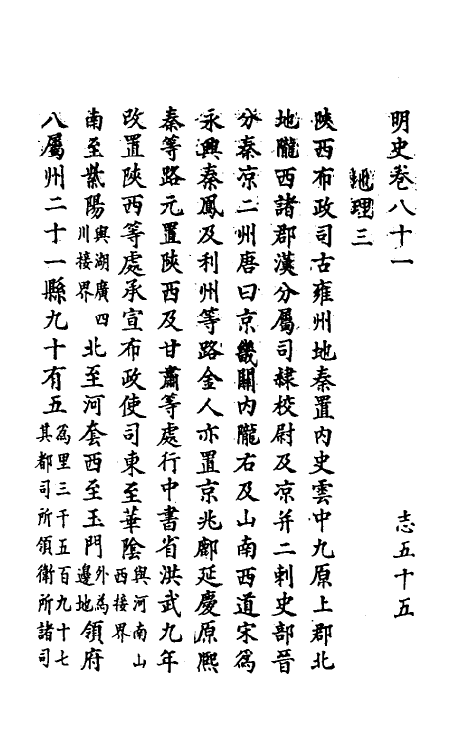 明史卷八十一 志五十五
地理三
陝西布政司古雍州地秦置内史雲中九原上郡北
地隴西諸郡漢分屬司隸校尉及凉并二刺史部晉
分秦凉二州唐曰京畿關内隴右及山南西道宋為
永興秦鳳及利州等路金人亦置京兆鄜延慶原熈
秦等路元置陝西及甘肅等處行中書省洪武九年
改置陝西等處承宣布政使司東至華陰與河南山西接界
南至紫陽與湖廣四川接界北至河套西至玉門外為邊地領府
八屬州二十一縣九十有五為里三千五百九十七其都司所領衛所諸司